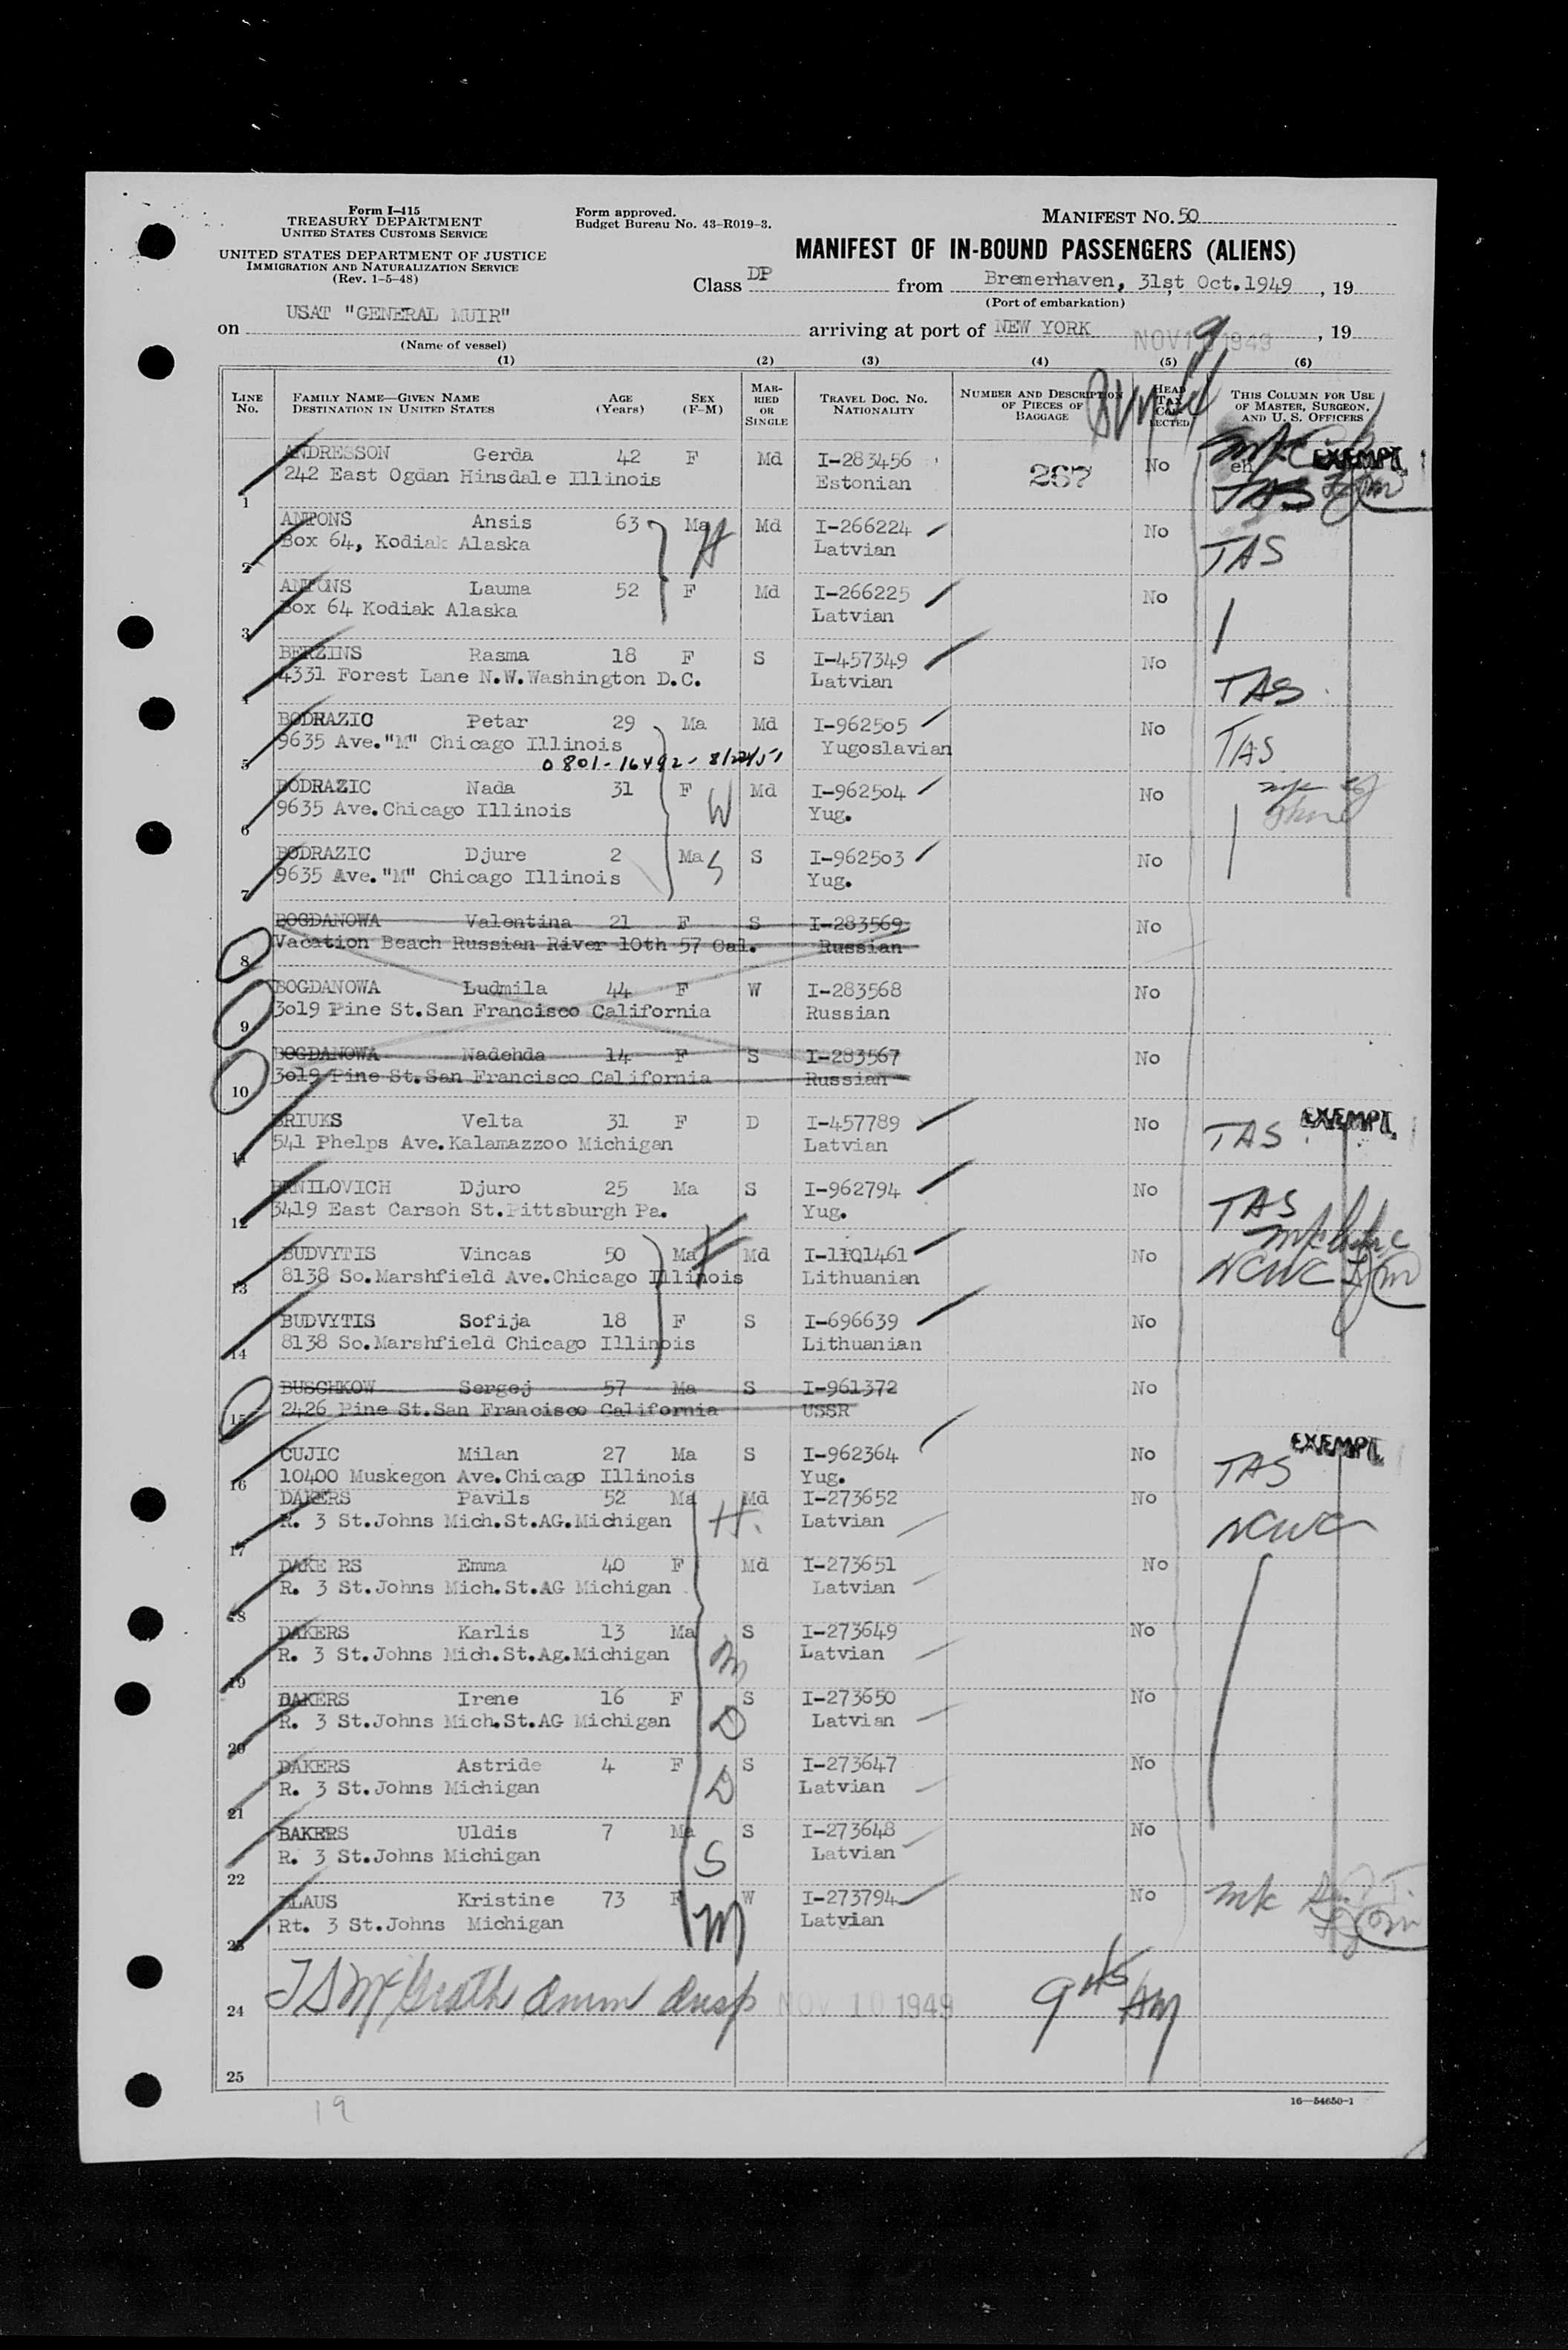 Form I-415
TREASURY DEPARTMENT
UNITED STATES CUSTOMS SERVICE
UNITED STATES DEPARTMENT OF JUSTICE
IMMIGRATION AND NATURALIZATION SERVICE
(Rev. 1-5-48)
Form approved.
Budget Bureau No. 43-R019-3.
MANIFEST NO. 50
MANIFEST OF IN-BOUND PASSENGERS (ALIENS)
Class DP from Bremerhaven, 31st Oct.1949, 19
(Port of embarkation)
on USAT "GENERAL MUIR" arriving at port of NEW YORK NOV 1949, 19
(Name of vessel)
(1) (2) (3) (4) (5) (6)
LINE NO. FAMILY NAME—GIVEN NAME DESTINATION IN UNITED STATES AGE (Years) SEX (F-M) MARRIED OR SINGLE TRAVEL DOC. NO. NATIONALITY NUMBER AND DESCRIPTION OF PIECES OF BAGGAGE HEAD TAX COLLECTED THIS COLUMN FOR USE OF MASTER, SURGEON, AND U. S. OFFICERS
ANDRESSON Gerda 42 F Md I-283456 267 No EXEMPT
1 242 East Ogdan Hinsdale Illinois Estonian TAS
ANTONS Ansis 63 Ma H Md I-266224 No TAS
2 Box 64, Kodiak Alaska Latvian
ANTONS Lauma 52 F Md I-266225 No
3 Box 64 Kodiak Alaska Latvian
BERZINS Rasma 18 F S I-457349 No TAS
4 4331 Forest Lane N.W.Washington D.C. Latvian
BODRAZIC Petar 29 Ma Md I-962505 No TAS
5 9635 Ave."M" Chicago Illinois Yugoslavian
0801-16492- 8/22/51
BODRAZIC Nada 31 F W Md I-962504 No
6 9635 Ave.Chicago Illinois Yug.
BODRAZIC Djure 2 Ma S S I-962503 No
7 9635 Ave."M" Chicago Illinois Yug.
BOGDANOWA Valentina 21 F S I-283569 No
8 Vacation Beach Russian River 10th 57 Cal. Russian
BOGDANOWA Ludmila 44 F W I-283568 No
9 3o19 Pine St.San Francisco California Russian
BOGDANOWA Nadehda 14 F S I-283567 No
10 3o19 Pine St.San Francisco California Russian
BRIUKS Velta 31 F D I-457789 No TAS EXEMPT
11 541 Phelps Ave.Kalamazzoo Michigan Latvian
DANILOVICH Djuro 25 Ma S I-962794 No TAS
12 3419 East Carsoh St.Pittsburgh Pa. Yug.
BUDVYTIS Vincas 50 Ma F Md I-1101461 No NCWC
13 8138 So.Marshfield Ave.Chicago Illinois Lithuanian
BUDVYTIS Sofija 18 F S I-696639 No
14 8138 So.Marshfield Chicago Illinois Lithuanian
BUSCHKOW Sergej 57 Ma S I-961372 No
15 2426 Pine St.San Francisco California USSR
CUJIC Milan 27 Ma S I-962364 No TAS EXEMPT
16 10400 Muskegon Ave.Chicago Illinois Yug.
DAKERS Pavils 52 Ma H. Md I-273652 No NCWC
17 R. 3 St.Johns Mich.St.AG.Michigan Latvian
DAKE RS Emma 40 F Md I-273651 No
18 R. 3 St.Johns Mich.St.AG Michigan Latvian
DAKERS Karlis 13 Ma S I-273649 No
19 R. 3 St.Johns Mich.St.Ag.Michigan m Latvian
DAKERS Irene 16 F S I-273650 No
20 R. 3 St.Johns Mich.St.AG Michigan D Latvian
DAKERS Astride 4 F S I-273647 No
21 R. 3 St.Johns Michigan D Latvian
BAKERS Uldis 7 Ma S I-273648 No
22 R. 3 St.Johns Michigan S Latvian
KLAUS Kristine 73 F W I-273794 No mk
23 Rt. 3 St.Johns Michigan M Latvian
24 T S McGrath Imm Insp NOV 10 1949 9 45 AM
25
16—54650-1
19